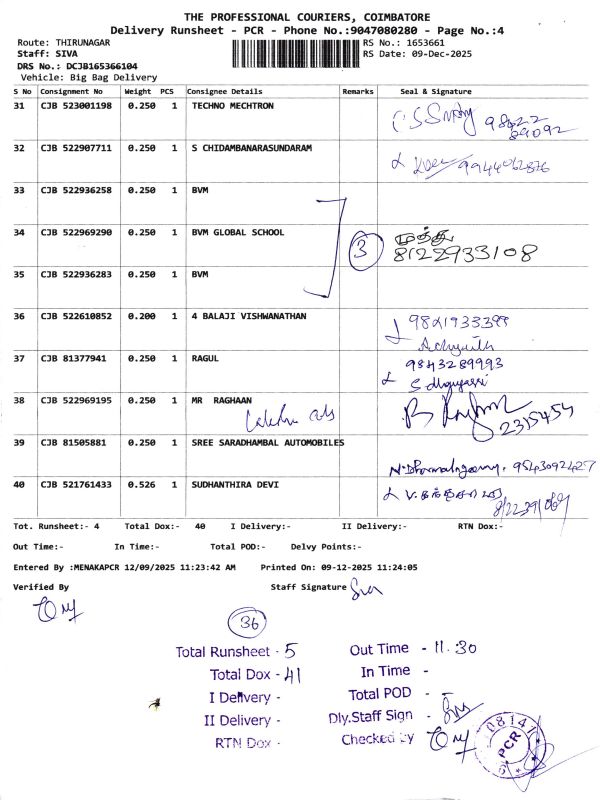 THE PROFESSIONAL COURIERS, COIMBATORE
Delivery Runsheet - PCR - Phone No.:9047080280 - Page No.:4
Route: THIRUNAGAR RS No.: 1653661
Staff: SIVA RS Date: 09-Dec-2025
DRS No.: DCJB165366104
Vehicle: Big Bag Delivery
S No Consignment No Weight PCS Consignee Details Remarks Seal & Signature
31 CJB 523001198 0.250 1 TECHNO MECHTRON
98422
89092
32 CJB 522907711 0.250 1 S CHIDAMBANARASUNDARAM
9944062876
33 CJB 522936258 0.250 1 BVM
34 CJB 522969290 0.250 1 BVM GLOBAL SCHOOL 3 முத்து
8122933108
35 CJB 522936283 0.250 1 BVM
36 CJB 522610852 0.200 1 4 BALAJI VISHWANATHAN
37 CJB 81377941 0.250 1 RAGUL 9843289993
38 CJB 522969195 0.250 1 MR RAGHAAN
2315454
39 CJB 81505881 0.250 1 SREE SARADHAMBAL AUTOMOBILES
9543092427
40 CJB 521761433 0.526 1 SUDHANTHIRA DEVI
Tot. Runsheet:- 4 Total Dox:- 40 I Delivery:- II Delivery:- RTN Dox:-
Out Time:- In Time:- Total POD:- Delvy Points:-
Entered By :MENAKAPCR 12/09/2025 11:23:42 AM Printed On: 09-12-2025 11:24:05
Verified By Staff Signature
36
Total Runsheet - 5 Out Time - 11.30
Total Dox - 41 In Time -
I Delivery - Total POD - -
II Delivery - Dly.Staff Sign -
RTN Dox - Checked by
08147
PCR